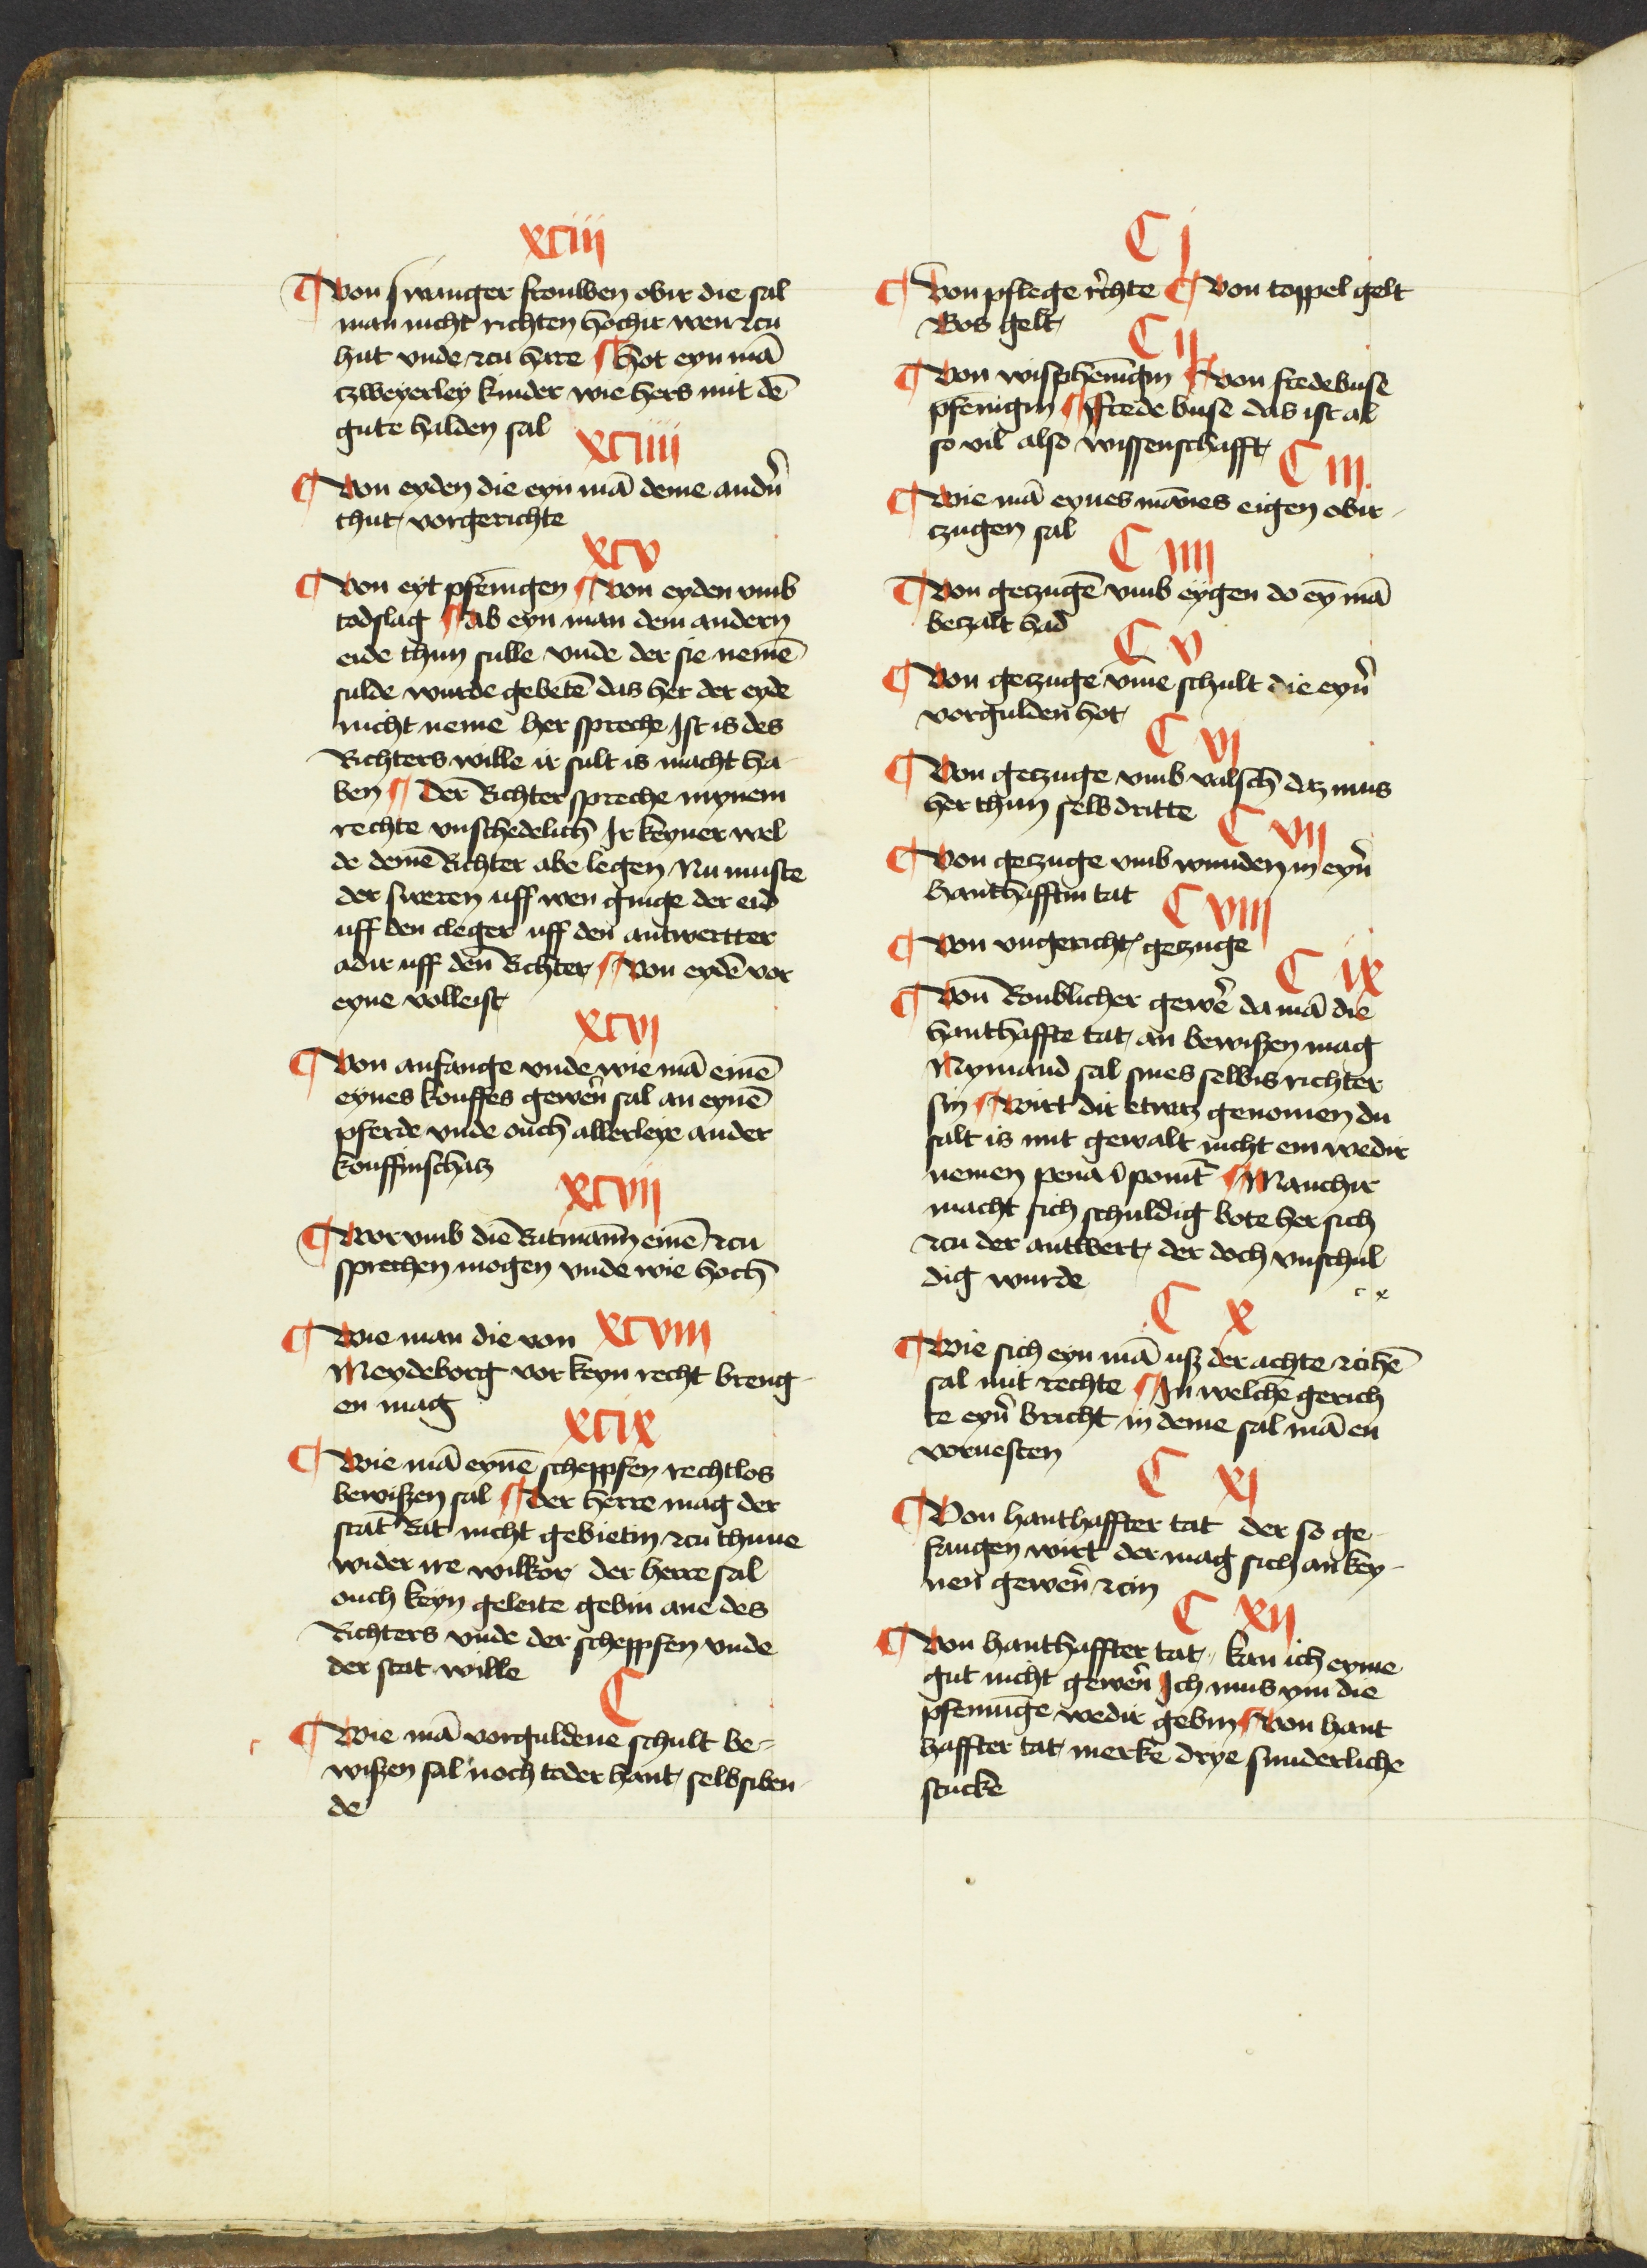 xciii
¶ Von swanger frouwen obir die sal
man nicht richten hochir wen zcu
hut vnde zcu hare ¶ Hot eyn mā
tzweyerley kinder wie hers mit dē
gute halden sal
xciiii
¶ Von eyden die eyn mā deme andn̄
thut vorgerichte
xcv
¶ Von eyt pfēnigen ¶ Von eyden vmb
todslag ¶ Ab eyn man dem andern
eide thun sulle vnde der sie nemē
sulde wurde gebetē das her der eyde
nicht neme her spreche Ist is des
Richters wille ir sult is macht ha
ben ¶ Der Richter spreche mynem
rechte vnschedelich Ir keyner wel
de demē Richter abe legen Nu muste
der sweren uff wen ginge der eid
uff den cleger uff den antwertter
adir uff den Richter ¶ Von eydē vor
eyne volleist
xcvi
¶ Von anfange vnde wie mā einē
eynes kouffes gewern̄ sal an eynē
pferde vnde ouch allerleye ander
kouffinschatz
xcvii
¶ Worvmb die Ratmann̄ einē zcu
sprechen mogen vnde wie hoch
¶ Wie man die von xcviii
Meydeborg vor keyn recht breng-
en mag
xcix
¶ Wie mā eynē scheppfen rechtlos
bewiszen sal ¶ Der herre mag der
stat Rat nicht gebietin zcu thune
wider ire wilkor der herre sal
ouch keyn geleite gebin ane des
Richters vnde der scheppfen vnde
der stat wille
C
¶ Wie mā vorguldene schult be-
wiszen sal noch toder hant selbsiben-
de
C j
¶ Von pflege r̄chte ¶ Von toppel gelt
Bos gelt
C ij
¶ Von wisphēnigin ¶ von fredebuse
pfēnigin ¶ ffrede buse das ist al
so vil also wissenschafft
C iii
¶ Wie mā eynes mānes eigen obir-
tzugen sal
C iiii
¶ Von getzugē vmb eygen do ey mā
betzalt had
C v
¶ Von getzuge vm̄e schult die eyn̄
vorgulden hot
C vj
¶ Von getzuge vmb valsch daz mus
her thun selbdritte
C vij
¶ Von getzuge vmb wunden in eyn̄
hanthafftin tat
C viii
¶ Von vngericht getzuge
C ix
¶ Von Roublicher gewē da mā die
hanthaffte tat an bewiszen mag
Nymand sal sines selbis richter
sin ¶ Wirt dir etwaz genomen du
salt is mit gewalt nicht em wedir
nemen pena ponit ¶ Manchir
macht sich schuldig bote her sich
zcu der antwert der doch vnschul
dig wurde
c x
C x
¶ Wie sich eyn mā usz der achte zcihē
sal mit rechte ¶ In welchē gerich
te eyn̄ bricht in deme sal mā en
voruesten
C xj
¶ Von hanthaffter tat der so ge-
fangen wirt der mag sich an key-
nen gewern̄ zcin
C xij
¶ Von hanthaffter tat kan ich eyme
gut nicht gewern̄ Ich mus ym die
pfennige wedir gebin ¶ Von hant
haffter tat merke drye sunderliche
stucke